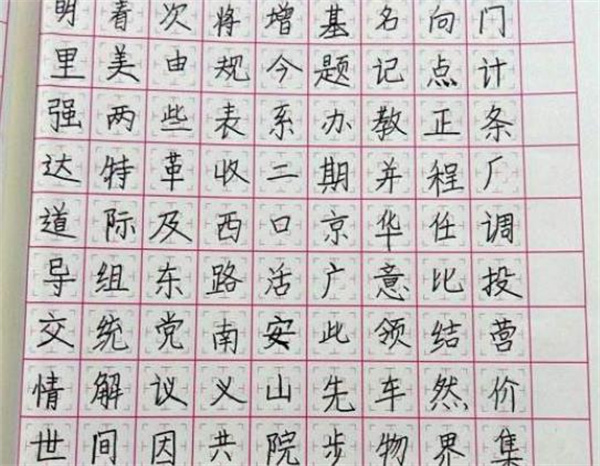 明着次将增基名向门
里美由规今题记点计
强两些表系办教正条
达特革收二期并程厂
道际及西口京华任调
导组东路活广意比投
交统党南安此领结营
情解议义山先车然价
世间因共院步物界集